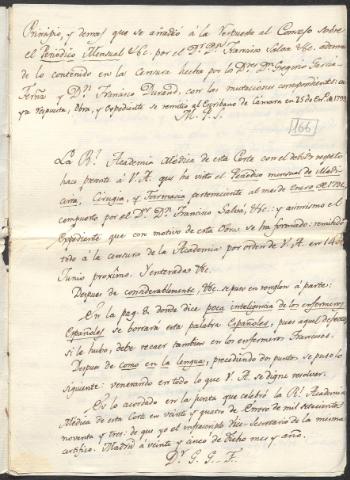 Principio, y demas que se añadió à la Respuesta al Consejo sobre
el Periodico Mensual &c. por el Dr. Dn. Francisco Salvá &c. ademas
de lo contenido en la Censura hecha por los Drs. Dn. Gregorio Garcia
Fernz. y Dn. Francisco Durand, con las mutaciones correspondientes: cu
ya respuesta, Obra, y expediente se remitio al Escribano de Camara en 25 de En.º de 1793
M. P. S.
166
La Rl. Academia Médica de esta Corte con el debido respeto
hace presente à V. A. que ha visto el Periodico mensual de Medi
cina, Cirugia, y Farmacia perteneciente al mes de Enero de
compuesto por el Dr. Dn. Francisco Salvá, &c: y asimismo el
Expediente que con motivo de esta Obra se ha formado: remitido
todo à la censura de la Academia por orden de V. A. en 14 de
Junio proximo. Y enterada &c.
Despues de considerablemente, &c. se puso en renglon à parte:
En la pag. 8 donde dice poca inteligencia de los enfermeros
Españoles se borrará esta palabra Españoles, pues aquel defecto
si le hubo, debe recaer tambien en los enfermeros Franceses.
Despues de como en la lengua, precediendo dos puntos, se puso lo
siguiente: venerando en todo lo que V. A. se digne resolver.
Es lo acordado en la junta que celebró la Rl. Academia
Médica de esta Corte en veinte y quatro de Enero de mil setecientos
noventa y tres: de que yo el infrascripto Vice-Secretario de la misma
certifico. Madrid à veinte y cinco de dicho mes y año.
Dr. G. G. F.